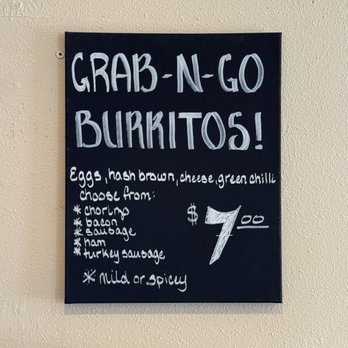 GRAB-N-GO
BURRITOS!
Eggs, hash brown, cheese, green chili
choose from:
* chorizo
* bacon
* sausage
* ham
* turkey sausage
$7.00
* Mild or spicy